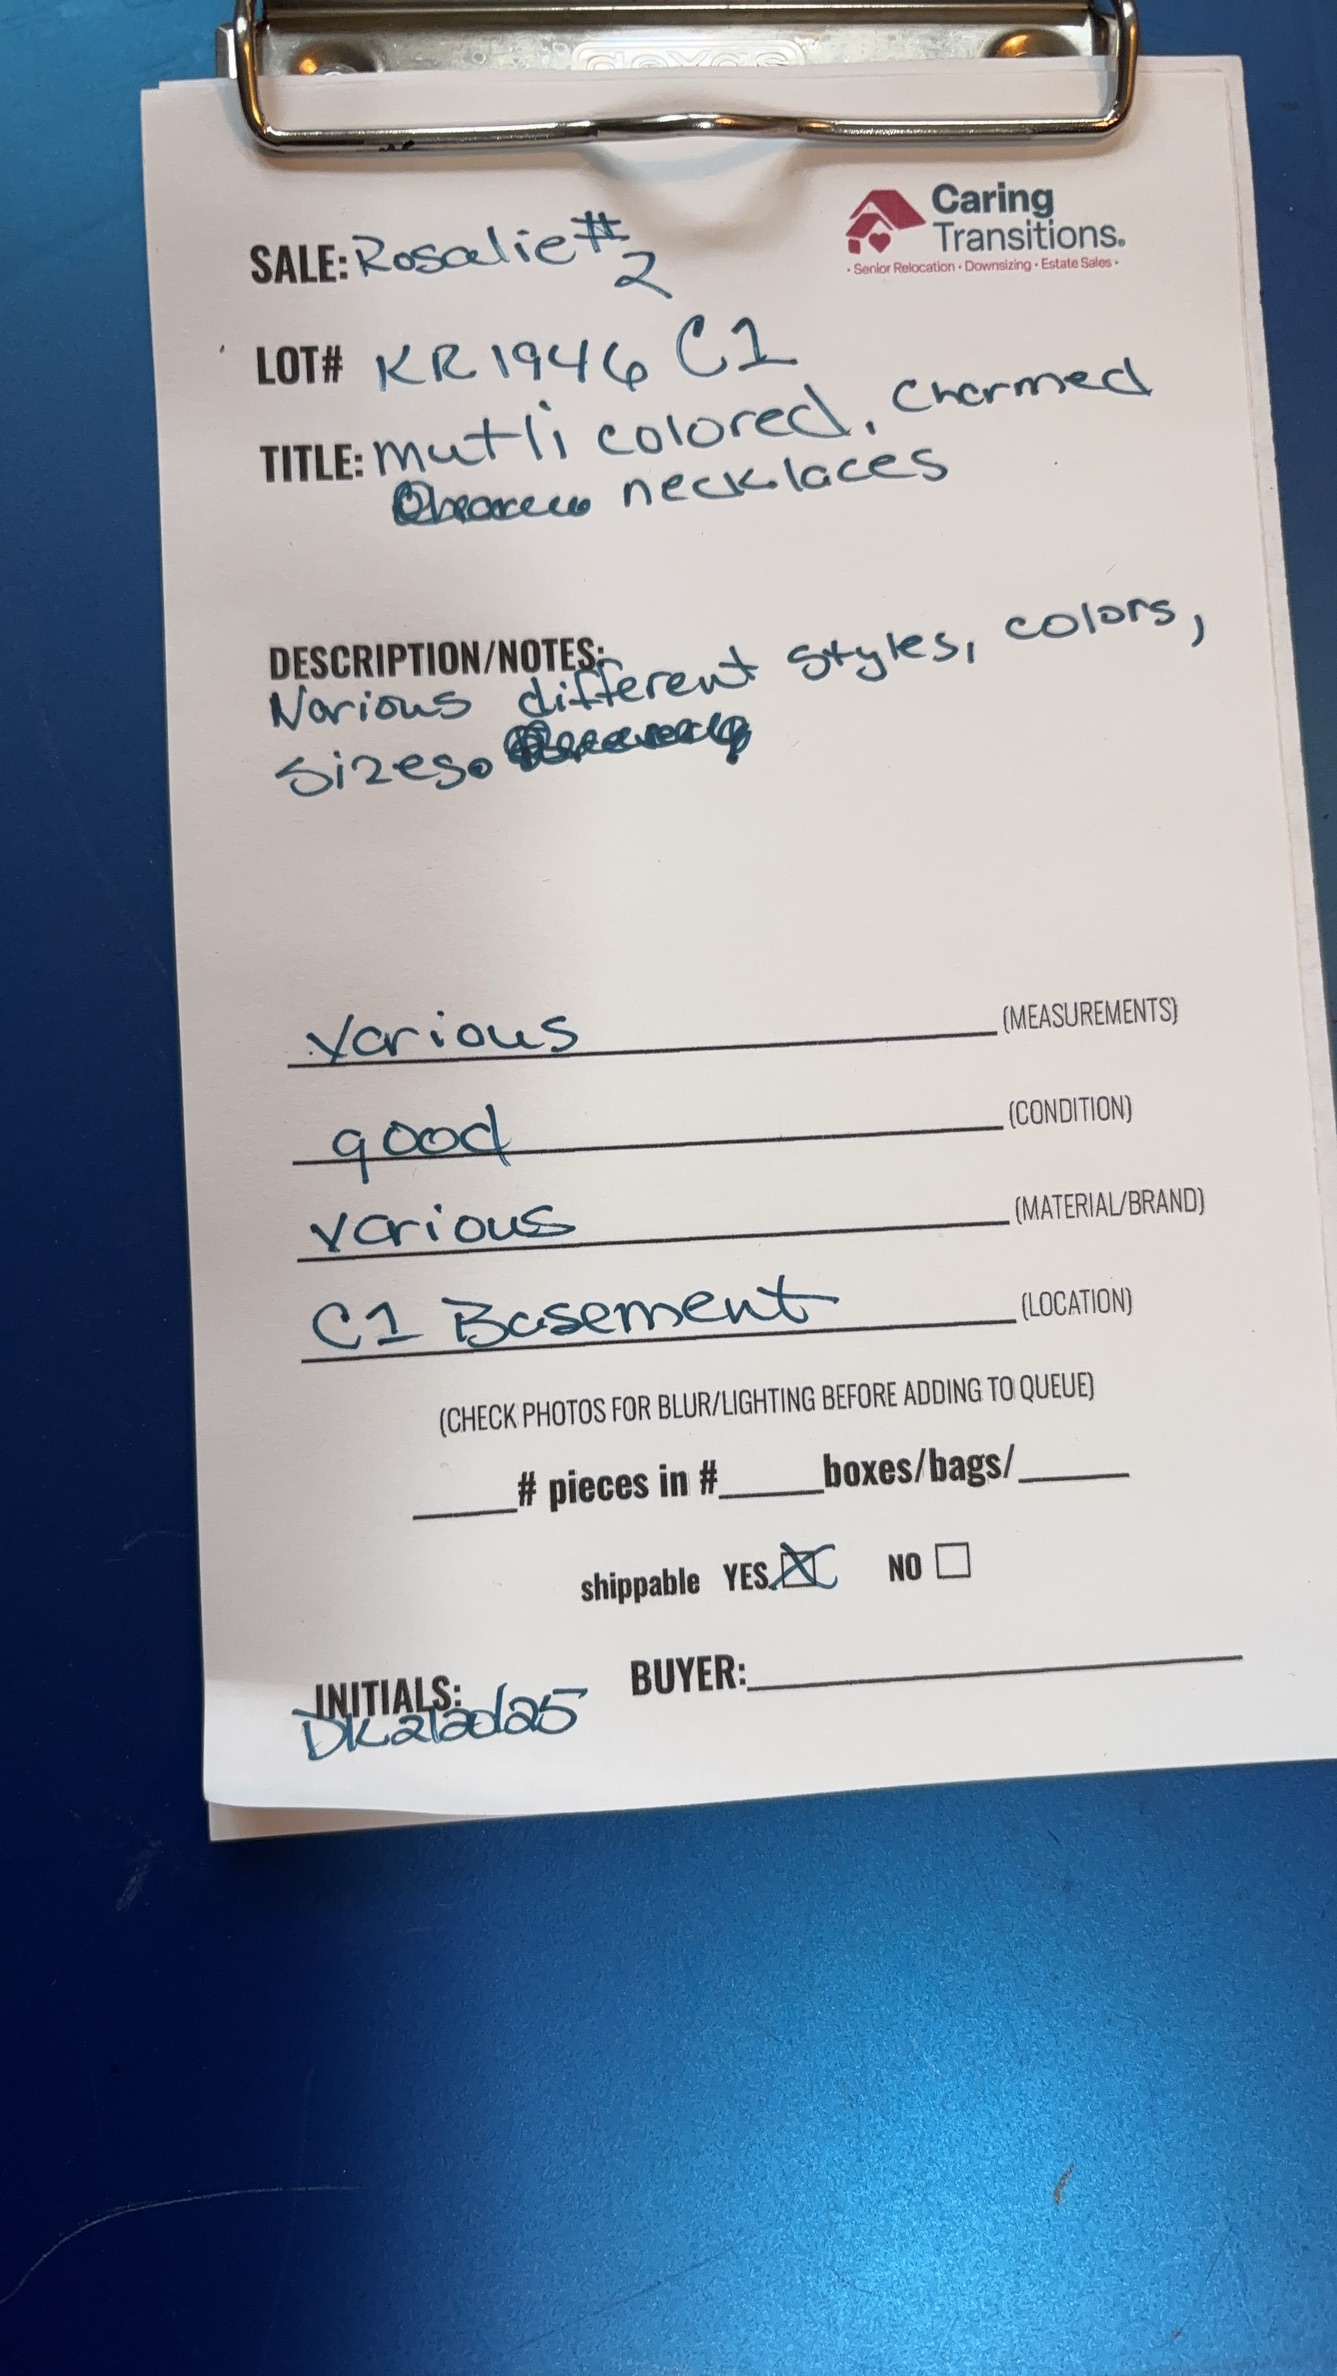 Caring
Transitions.
• Senior Relocation • Downsizing • Estate Sales •
SALE: Rosalie #2
LOT# KR1946 C1
TITLE: mutli colored, Charmed
necklaces
DESCRIPTION/NOTES:
Various different styles, colors,
sizes.
various (MEASUREMENTS)
good (CONDITION)
various (MATERIAL/BRAND)
C1 Basement (LOCATION)
(CHECK PHOTOS FOR BLUR/LIGHTING BEFORE ADDING TO QUEUE)
# pieces in # boxes/bags/
shippable YES NO
INITIALS: BUYER: